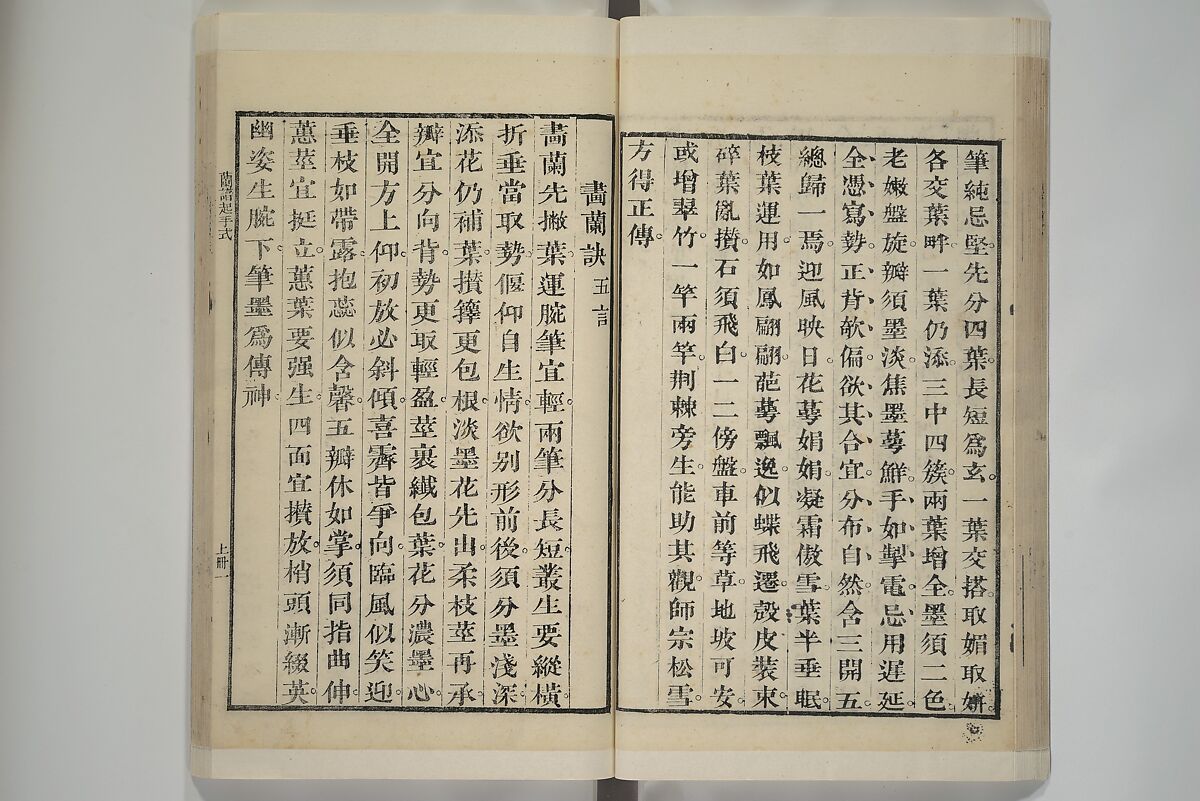 筆純忌堅。先分四葉。長短爲玄。一葉交搭。取媚取姸。
各交葉畔。一葉仍添。三中四簇。兩葉增全。墨須二色。
老嫩盤旋。瓣須墨淡。焦墨萼鮮。手如掣電。忌用遲延。
全憑寫勢。正背欹偏。欲其合宜。分布自然。含三開五。
總歸一焉。迎風映日。花萼娟娟。凝霜傲雪。葉半垂眠。
枝葉運用。如鳳翩翩。葩萼飄逸。似蝶飛遷。殼皮裝束。
碎葉亂攢。石須飛白。一二傍盤。車前等草。地坡可安。
或增翠竹。一竿兩竿。荆棘旁生。能助其觀。師宗松雪。
方得正傳。
畵蘭訣 五言
畵蘭先撇葉。運腕筆宜輕。兩筆分長短。叢生要縱橫。
折垂當取勢。偃仰自生情。欲别形前後。須分墨淺深。
添花仍補葉。攢籜更包根。淡墨花先出。柔枝莖再承。
瓣宜分向背。勢更取輕盈。莖裹纖包葉。花分濃墨心。
全開方上仰。初放必斜傾。喜霽皆爭向。臨風似笑迎。
垂枝如帶露。抱蕊似含馨。五瓣休如掌。須同指曲伸。
蕙莖宜挺立。蕙葉要强生。四面宜攢放。梢頭漸綴英。
幽姿生腕下。筆墨爲傳神。
蘭譜起手式
上冊一